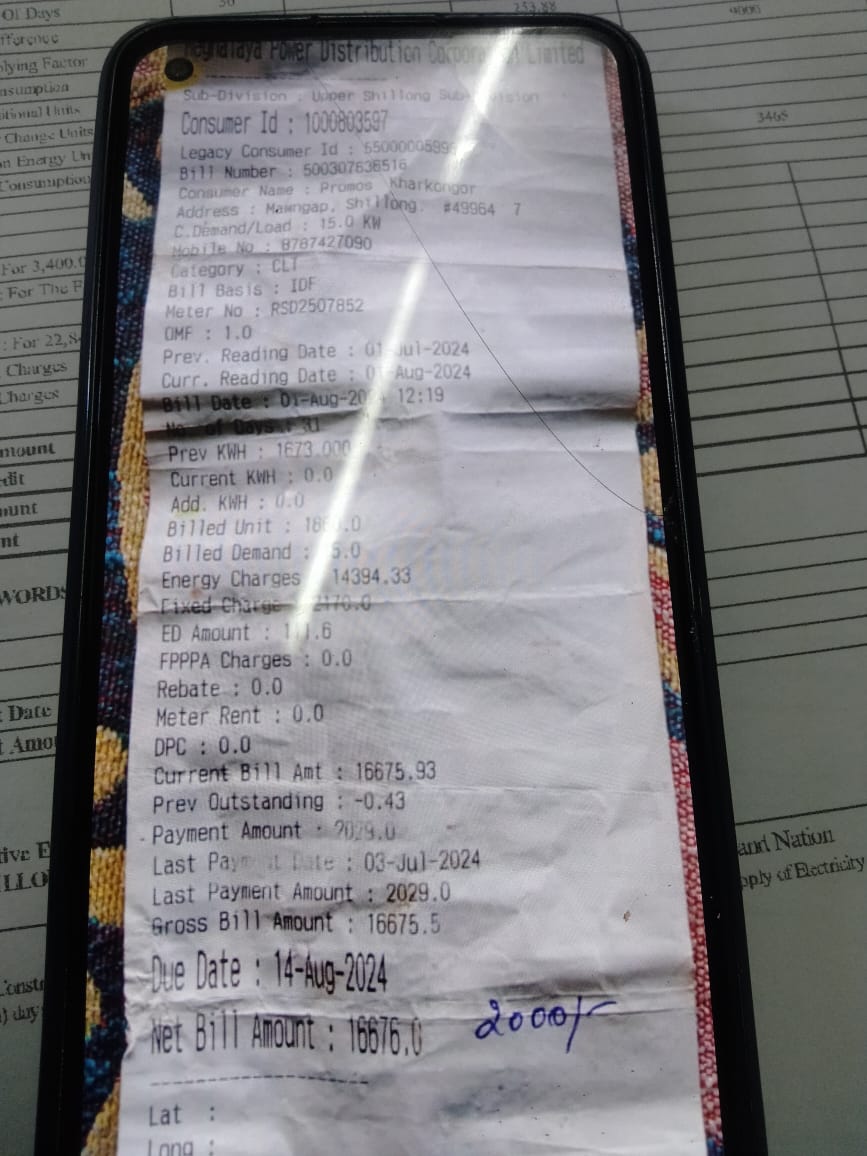 Of Days 30 253.88 9000
fference
lying Factor
nsumption
itional Units
Change Units 3465
n Energy Un
Consumption
For 3,400.0
: For The F
: For 22,8
Charges
Charges
mount
dit
ount
nt
WORDS
t Date
t Amou
tive E
ILLO
Constr
) day
and Nation
pply of Electricity
Meghalaya Power Distribution Corporation Limited
Sub-Division : Upper Shillong Sub-Division
Consumer Id : 1000803597
Legacy Consumer Id :
Bill Number : 500307636516
Consumer Name : Promos Kharkongor
Address : Mawngap, Shillong. #49964 7
C.Demand/Load : 15.0 KW
Mobile No : 8787427090
Category : CLT
Bill Basis : IDF
Meter No : RSD2507852
OMF : 1.0
Prev. Reading Date : 01-Jul-2024
Curr. Reading Date : 01-Aug-2024
Bill Date : 01-Aug-2024 12:19
No. of Days : 31
Prev KWH : 1673.000
Current KWH : 0.0
Add. KWH : 0.0
Billed Unit :
Billed Demand :
Energy Charges 14394.33
Fixed Charge 2170.0
ED Amount :
FPPPA Charges : 0.0
Rebate : 0.0
Meter Rent : 0.0
DPC : 0.0
Current Bill Amt : 16675.93
Prev Outstanding : -0.43
Payment Amount : 2029.0
Last Payment Date : 03-Jul-2024
Last Payment Amount : 2029.0
Gross Bill Amount : 16675.5
Due Date : 14-Aug-2024
Net Bill Amount : 16676.0 2000/-
--------------------
Lat :
Long :